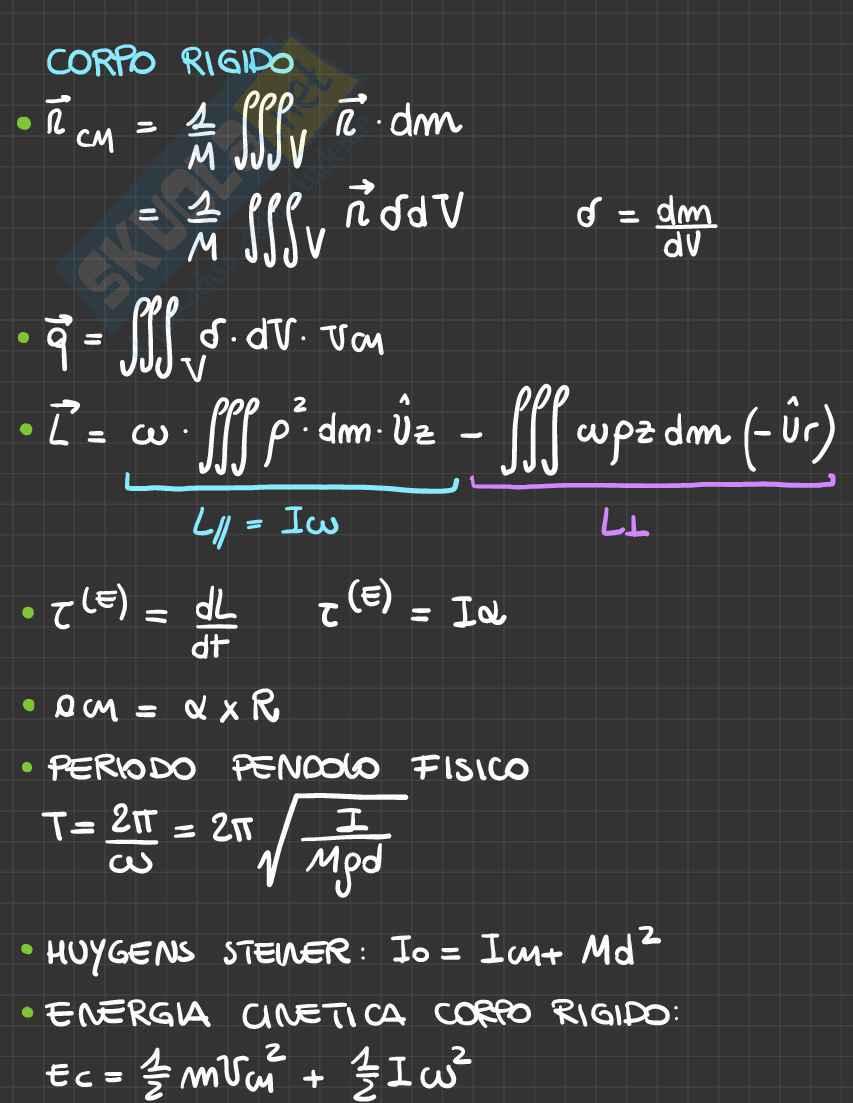 CORPO RIGIDO
• r⃗ CM = 1/M ∭V r⃗ · dm
= 1/M ∭V r⃗ δ dV δ = dm/dV
• q⃗ = ∭V δ · dV · vCM
• L⃗ = ω · ∭ ρ² · dm · Ûz - ∭ ωρz dm (-Ûr)
L// = Iω L⊥
• τ(E) = dL/dt τ(E) = Iα
• aCM = α x R
• PERIODO PENDOLO FISICO
T = 2π/ω = 2π √(I/Mgd)
• HUYGENS STEINER: Io = ICM + Md²
• ENERGIA CINETICA CORPO RIGIDO:
Ec = 1/2 mVCM² + 1/2 Iω²
SKUOLA.net